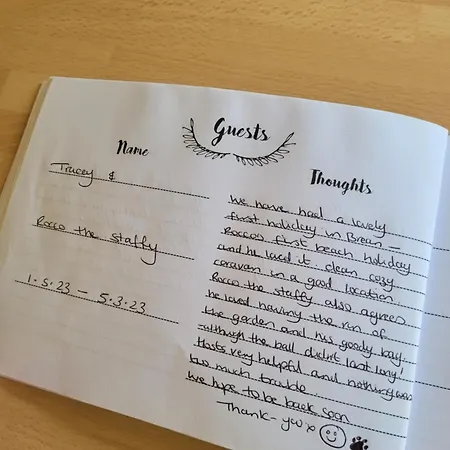 Guests
Name
Tracey &
Rocco the staffy
1.5.23 – 5.3.23
Thoughts
We have had a lovely
first holiday in Brean –
Rocco's first beach holiday
and he loved it clean cosy
caravan in a good location.
Rocco the staffy also agrees
he loved having the run of
the garden and his goody bag
–although the ball didn't last long!
Hosts very helpful and nothing was
too much trouble
We hope to be back soon
Thank-you x